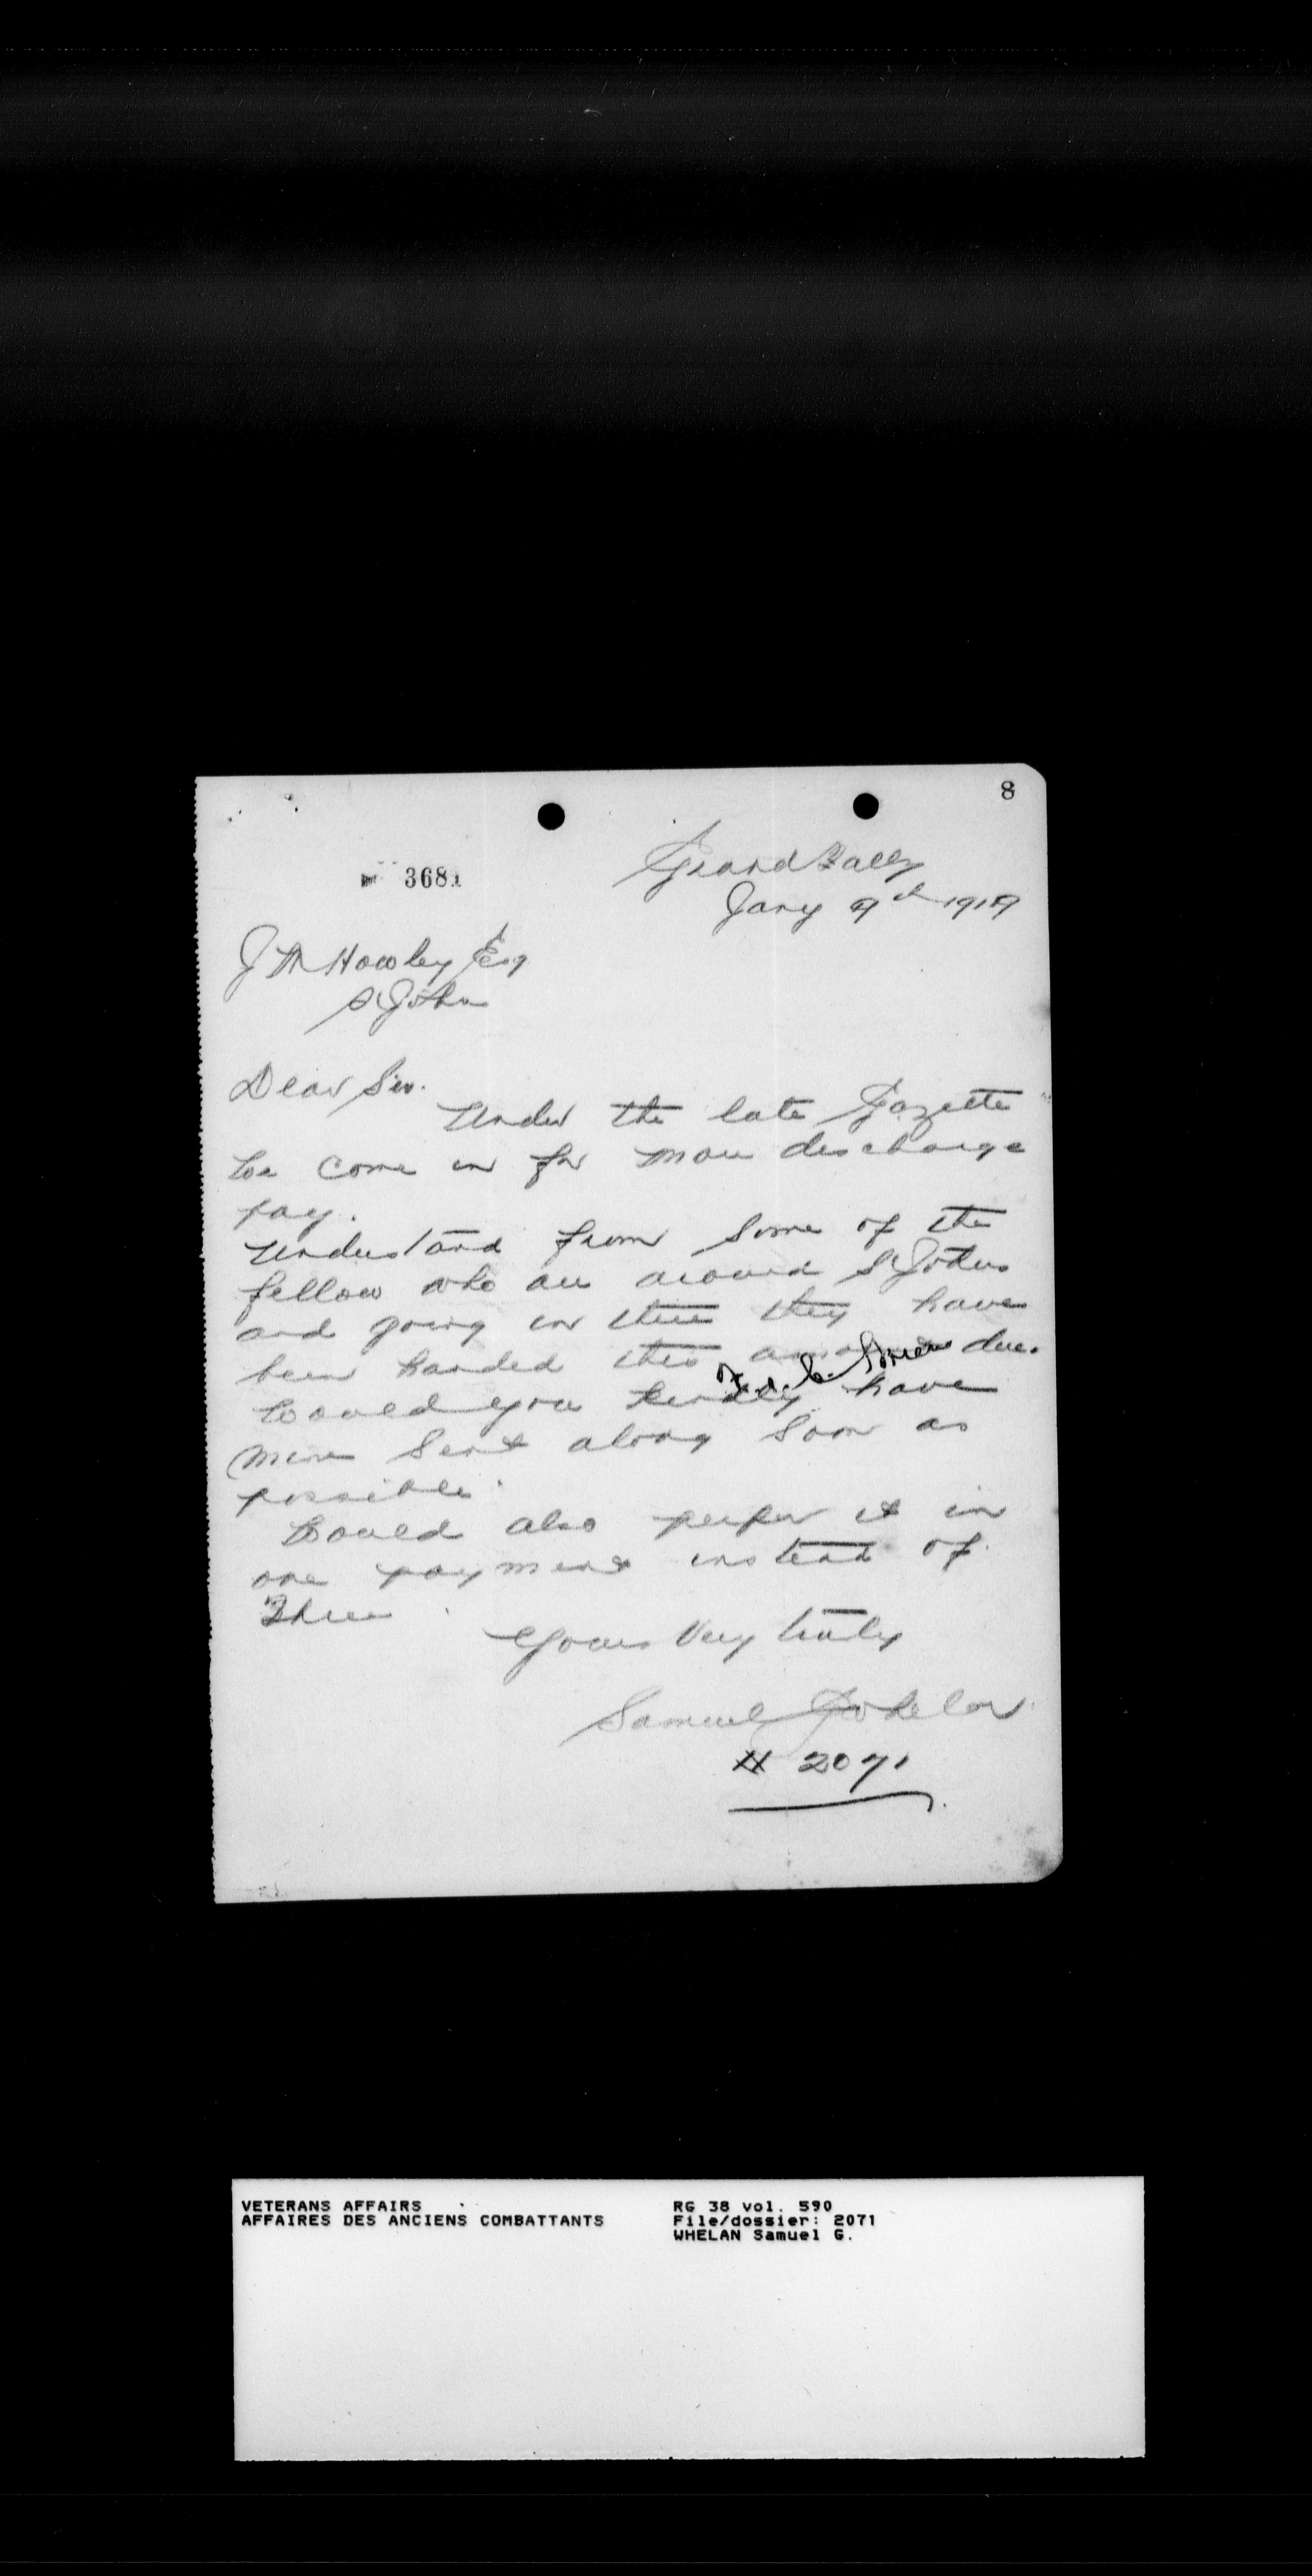 8
3681
Grand Falls
Jany 9th 1919
J M Howley Esq
St Johns
Dear Sir.
Under the late Gazette
we come in for more discharge
pay.
Understand from some of the
fellow who are around St Johns
and going in there they have
been handed this amount due.
Would you kindly have
mine sent along soon as
possible.
Would also prefer it in
one payment instead of
Three.
Yours Very truly
Samuel G Whelan
# 2071
VETERANS AFFAIRS
AFFAIRES DES ANCIENS COMBATTANTS
RG 38 vol. 590
File/dossier: 2071
WHELAN Samuel G.